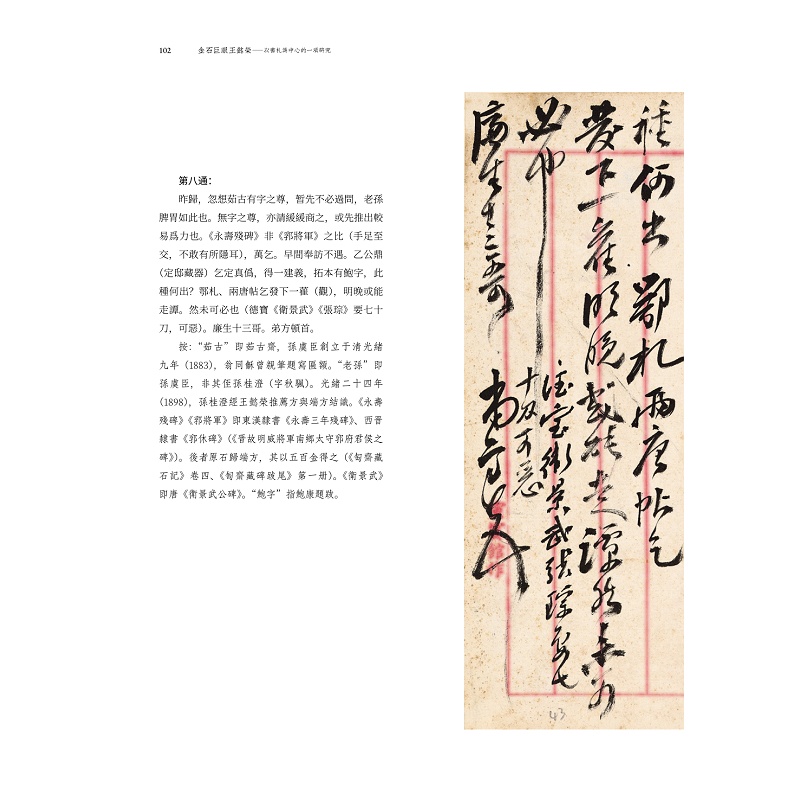 102
金石巨眼王懿榮——以書札爲中心的一項研究
第八通：
昨歸，忽想茹古有字之尊，暫先不必過問，老孫
脾胃如此也。無字之尊，亦請緩緩商之，或先推出較
易爲力也。《永壽殘碑》非《郭將軍》之比（手足至
交，不敢有所隱耳），萬乞。早間奉訪不遇。乙公鼎
（定邸藏器）乞定真僞，得一建義，拓本有鮑字，此
種何出？鄂札、兩唐帖乞發下一藿（觀），明晚或能
走譚。然未可必也（德寶《衛景武》《張琮》要七十
刀，可惡）。廉生十三哥。弟方頓首。
按：“茹古”即茹古齋，孫虞臣創立于清光緒
九年（1883），翁同龢曾親筆題寫匾額。“老孫”即
孫虞臣，非其侄孫桂澄（字秋颿）。光緒二十四年
（1898），孫桂澄經王懿榮推薦方與端方結識。《永壽
殘碑》《郭將軍》即東漢隸書《永壽三年殘碑》、西晉
隸書《郭休碑》（《晉故明威將軍南鄉太守郭府君侯之
碑》）。後者原石歸端方，其以五百金得之（《匋齋藏
石記》卷四、《匋齋藏碑跋尾》第一册）。《衛景武》
即唐《衛景武公碑》。“鮑字”指鮑康題跋。
種何出鄂札兩唐帖乞
發下一藿明晚或能走譚然未可
必也
德寶衛景武張琮要七
十刀可惡
廉生十三哥
弟方頓首
43